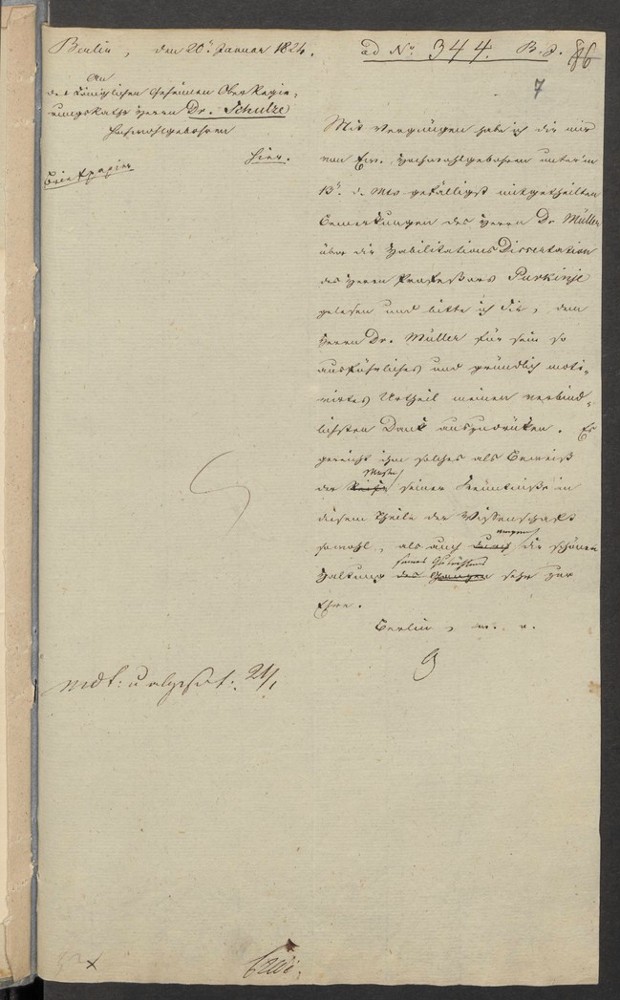 Berlin, den 20ⁿ Januar 1824.
ad No 344. B. 8. 86
7
An
des Königlichen Geheimen Ober Regie-
rungsraths Herrn Dr. Schulze
Hochwohlgeboren
hier.
Briefpapier
Mit Vergnügen habe ich die mir
von Ew. Hochwohlgeboren unter'm
13ⁿ d. Mts gefälligst mitgetheilten
Bemerkungen des Herrn Dr. Müller
über die Habilitations Dissertation
des Herrn Professors Purkinje
gelesen und bitte ich Sie, dem
Herrn Dr. Müller für sein so
ausführliches und gründlich moti-
virtes Urtheil meinen verbind-
lichsten Dank auszudrücken. Es
gereicht ihm solches als Beweis
der seiner Kenntniße in
diesem Theile der Wissenschaft
sowohl, als auch wegen der schönen
Haltung seines Gutachtens sehr zur
Ehre.
Berlin, w. v.
mdt: u abges: 21/1